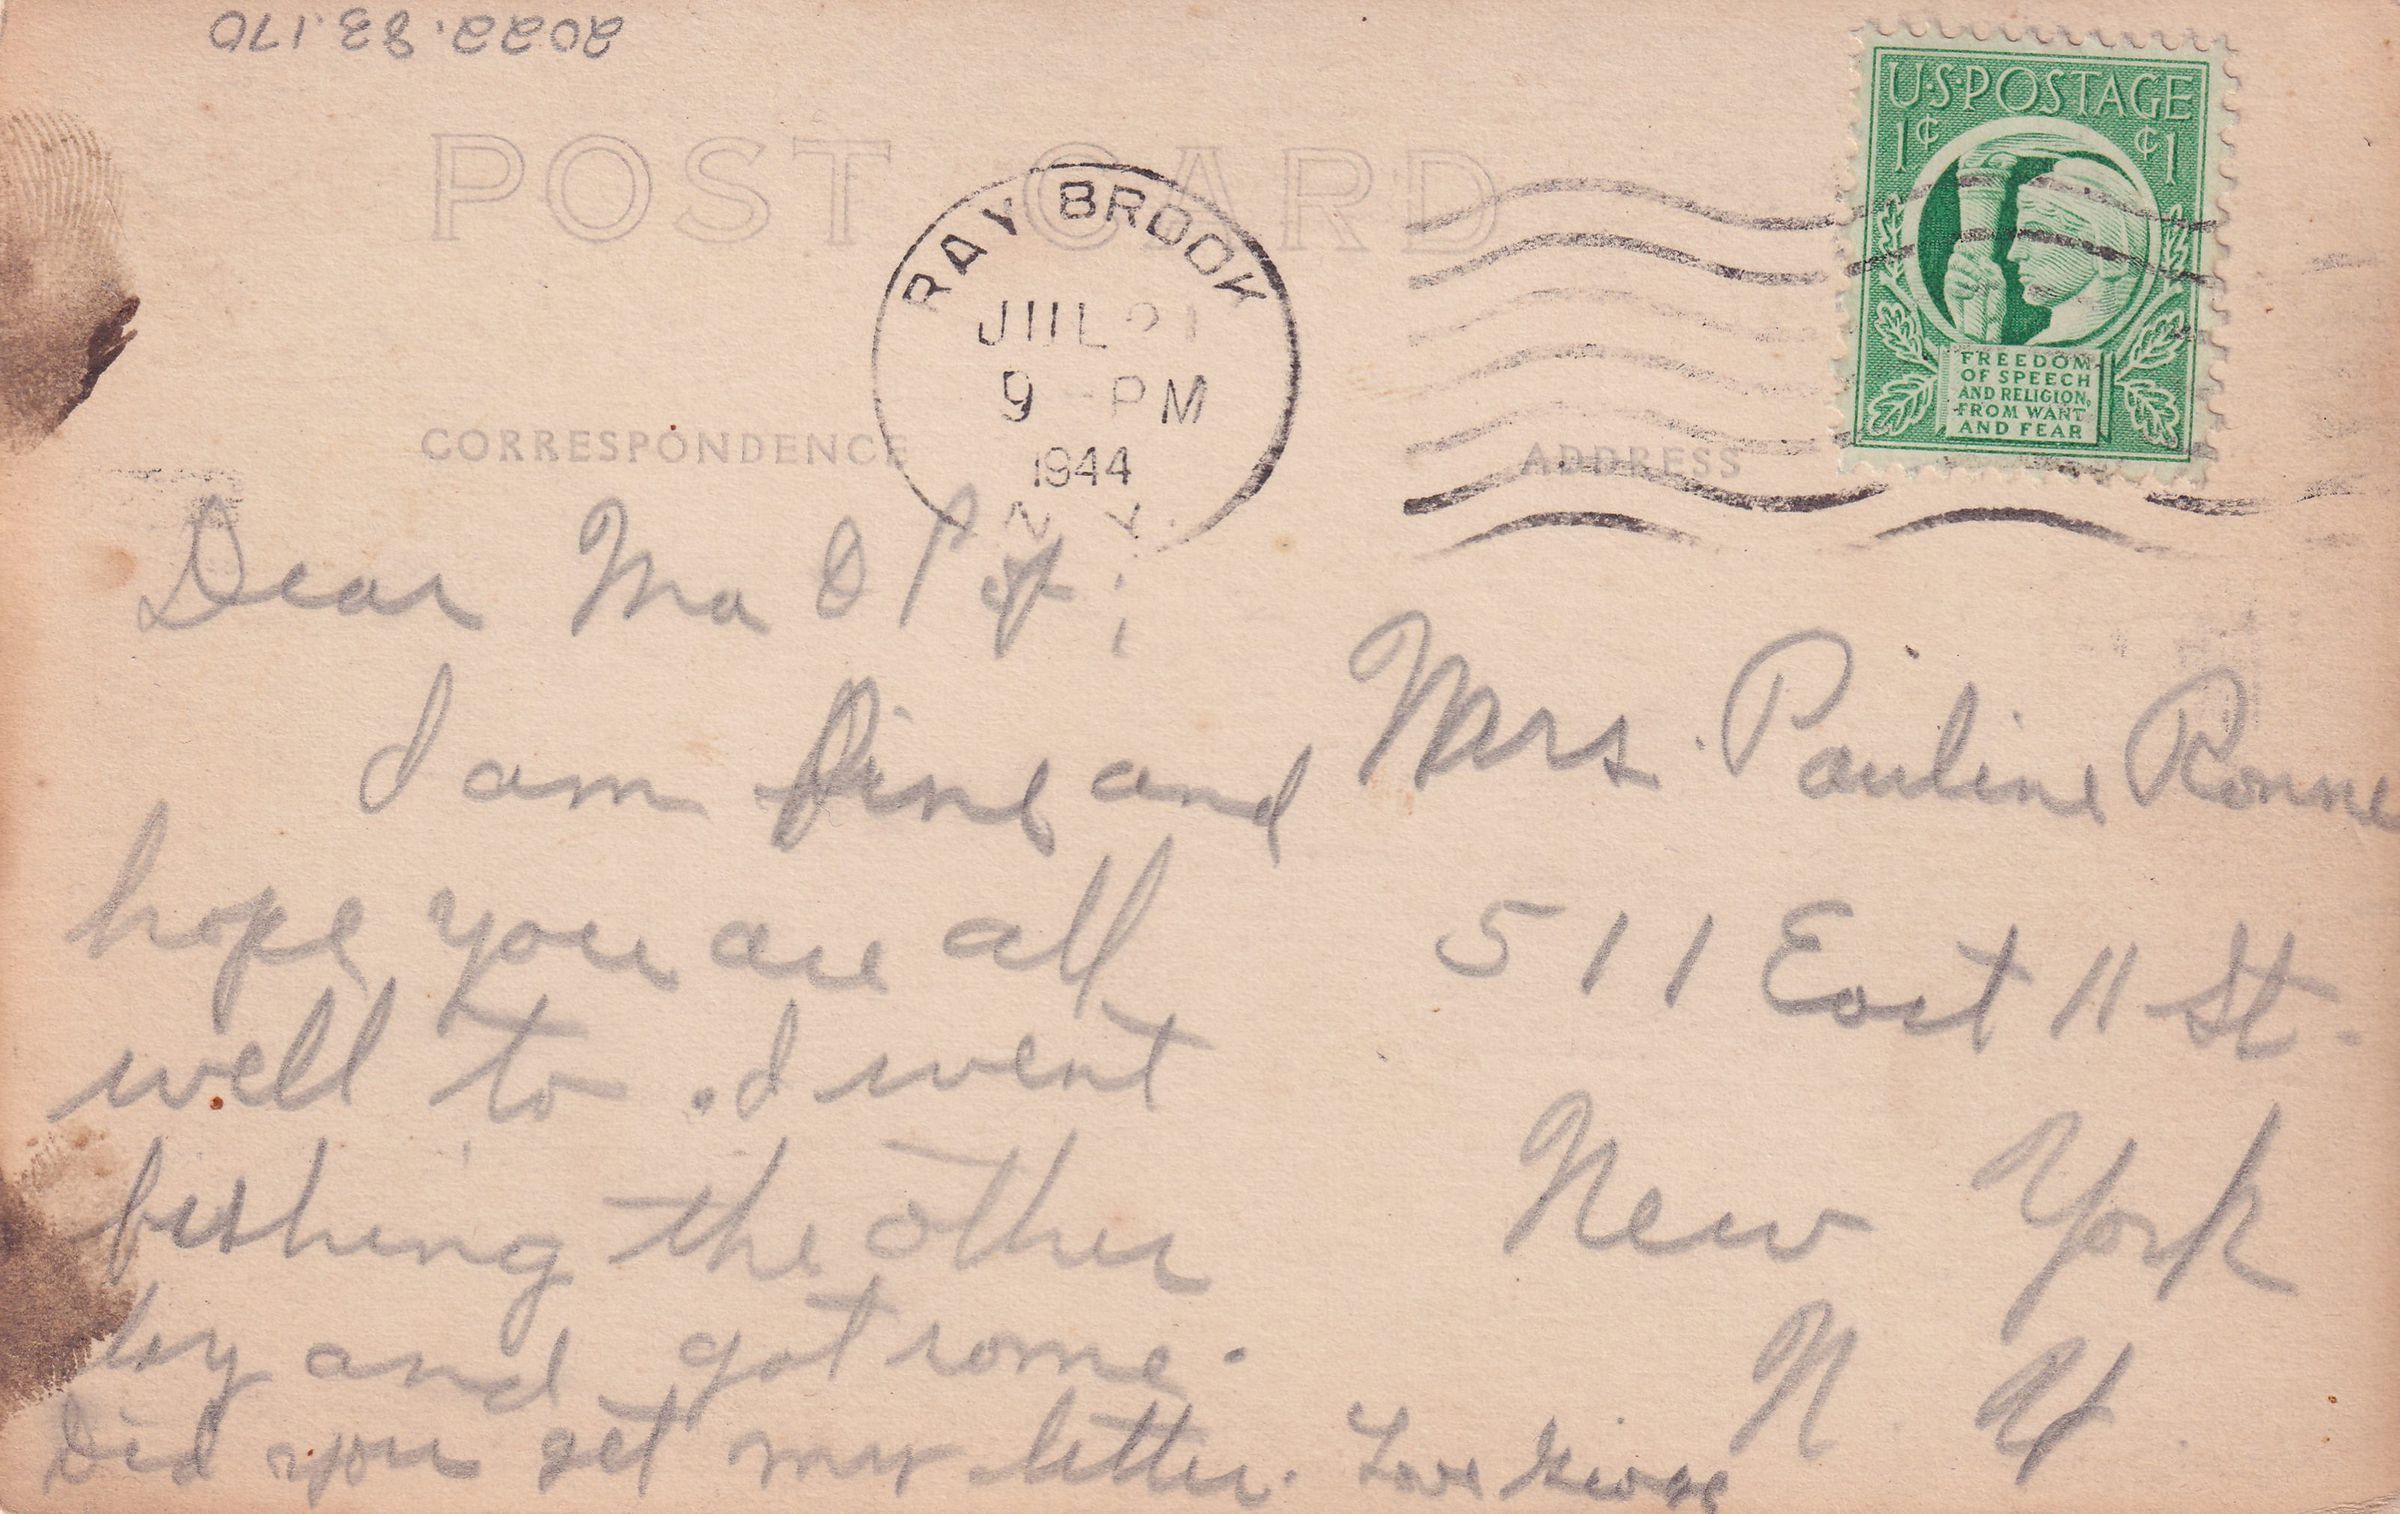 2022.83.170
POST CARD
U.S. POSTAGE
1¢ ¢1
FREEDOM
OF SPEECH
AND RELIGION,
FROM WANT
AND FEAR
RAY BROOK
JUL 21
9 - PM
1944
N. Y.
CORRESPONDENCE
ADDRESS
Dear Ma &
I am fine and
hope you are all
well to. I went
fishing the other
and got some.
Did you get my letter. Love George
Mrs. Pauline Ronne
511 East 11 St.
New York
N. Y.